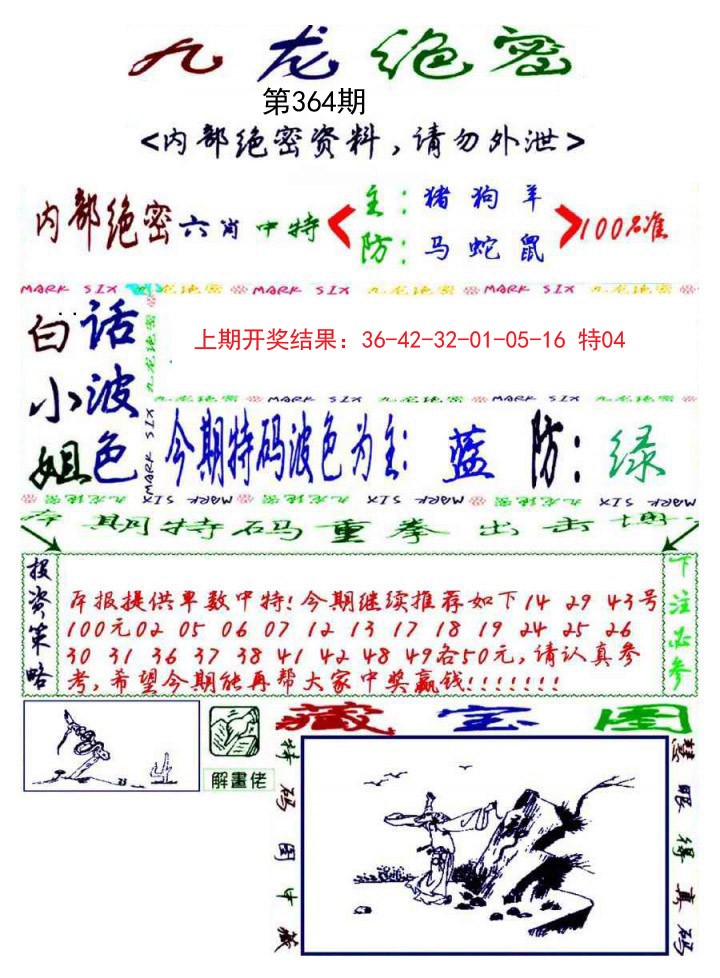 九龙绝密
第364期
<内部绝密资料,请勿外泄>
内部绝密六肖中特
主:猪狗羊
防:马蛇鼠
100%准
MARK SIX 九龙绝密 MARK SIX 九龙绝密 MARK SIX 九龙绝密
白话
小波
姐色
九龙绝密 MARK SIX
上期开奖结果：36-42-32-01-05-16 特04
九龙绝密 MARK SIX 九龙绝密 MARK SIX 九龙绝密
今期特码波色为主:蓝 防:绿
九龙绝密 MARK SIX 九龙绝密 MARK SIX 九龙绝密 MARK SIX
本期特码重拳出击博
投资策略
本报提供单数中特!今期继续推荐如下14 29 43号
100元02 05 06 07 12 13 17 18 19 24 25 26
30 31 36 37 38 41 42 48 49各50元,请认真参
考,希望今期能再帮大家中奖赢钱!!!!!!!
下注必参
藏宝图
解畫佬
特码图中藏
慧眼得真码